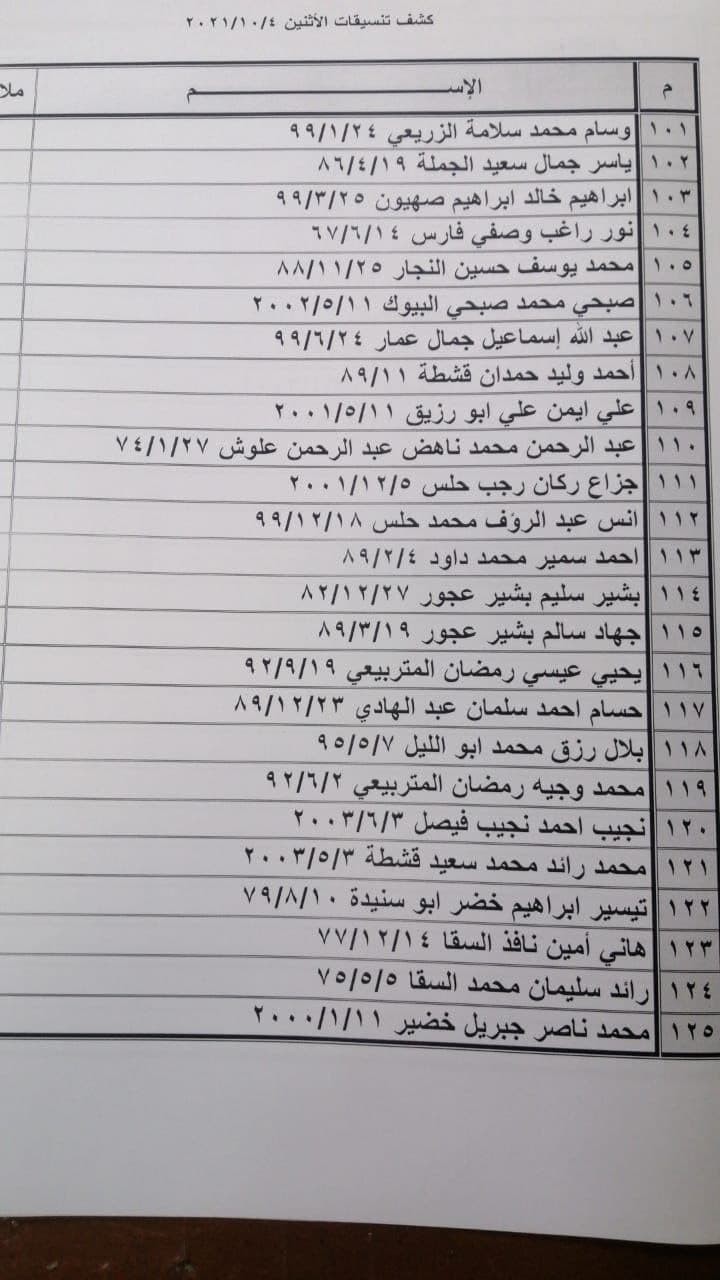 كشف تنسيقات الأثنين ٢٠٢١/١٠/٤
م الإســـــــــــــــــم ملا
١٠١ وسام محمد سلامة الزريعي ٩٩/١/٢٤
١٠٢ ياسر جمال سعيد الجملة ٨٦/٤/١٩
١٠٣ ابراهيم خالد ابراهيم صهيون ٩٩/٣/٢٥
١٠٤ نور راغب وصفي فارس ٦٧/٦/١٤
١٠٥ محمد يوسف حسين النجار ٨٨/١١/٢٥
١٠٦ صبحي محمد صبحي البيوك ٢٠٠٢/٥/١١
١٠٧ عبد الله إسماعيل جمال عمار ٩٩/٦/٢٤
١٠٨ أحمد وليد حمدان قشطة ٨٩/١١
١٠٩ علي ايمن علي ابو رزيق ٢٠٠١/٥/١١
١١٠ عبد الرحمن محمد ناهض عبد الرحمن علوش ٧٤/١/٢٧
١١١ جزاع ركان رجب حلس ٢٠٠١/١٢/٥
١١٢ انس عبد الرؤف محمد حلس ٩٩/١٢/١٨
١١٣ احمد سمير محمد داود ٨٩/٢/٤
١١٤ بشير سليم بشير عجور ٨٢/١٢/٢٧
١١٥ جهاد سالم بشير عجور ٨٩/٣/١٩
١١٦ يحيي عيسي رمضان المتربيعي ٩٢/٩/١٩
١١٧ حسام احمد سلمان عبد الهادي ٨٩/١٢/٢٣
١١٨ بلال رزق محمد ابو الليل ٩٥/٥/٧
١١٩ محمد وجيه رمضان المتربيعي ٩٢/٦/٢
١٢٠ نجيب احمد نجيب فيصل ٢٠٠٣/٦/٣
١٢١ محمد رائد محمد سعيد قشطة ٢٠٠٣/٥/٣
١٢٢ تيسير ابراهيم خضر ابو سنيدة ٧٩/٨/١٠
١٢٣ هاني أمين نافذ السقا ٧٧/١٢/١٤
١٢٤ رائد سليمان محمد السقا ٧٥/٥/٥
١٢٥ محمد ناصر جبريل خضير ٢٠٠٠/١/١١